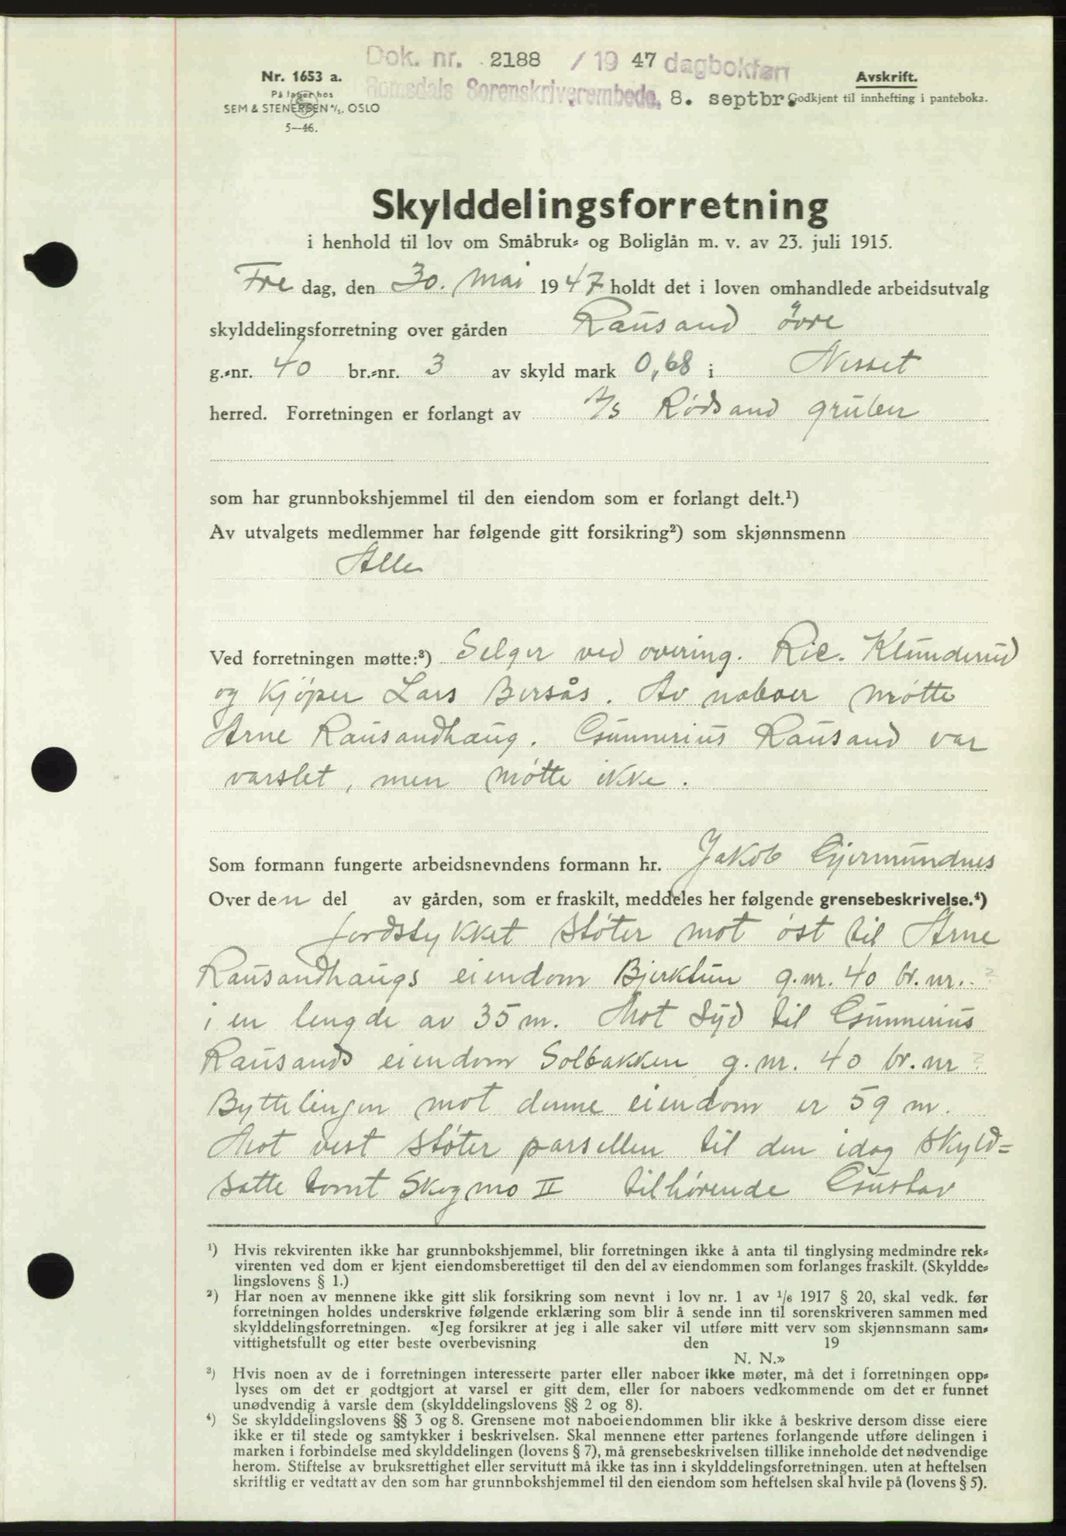 Dok. nr. 2188 / 19 47 dagbokført
Romsdals Sorenskriverembede, 8. septbr.
Nr. 1653 a.
På lager hos
SEM & STENERSEN A/S. OSLO
5—46.
Avskrift.
Godkjent til innhefting i panteboka.
Skylddelingsforretning
i henhold til lov om Småbruk- og Boliglån m. v. av 23. juli 1915.
Fre dag, den 30. Mai 1947 holdt det i loven omhandlede arbeidsutvalg
skylddelingsforretning over gården Rausand øvre
g.-nr. 40 br.-nr. 3 av skyld mark 0,68 i Nesset
herred. Forretningen er forlangt av A/S Rødsand gruber
som har grunnbokshjemmel til den eiendom som er forlangt delt.¹)
Av utvalgets medlemmer har følgende gitt forsikring²) som skjønnsmenn
Alle
Ved forretningen møtte:³) Selger ved overing. Ric. Klunderud
og Kjøper Lars Bersås. Av naboer møtte
Arne Rausandhaug. Gunnerius Rausand var
varslet, men møtte ikke.
Som formann fungerte arbeidsnevndens formann hr. Jakob Gjermundnes
Over den del av gården, som er fraskilt, meddeles her følgende grensebeskrivelse.⁴)
Jordstykket støter mot øst til Arne
Rausandhaugs eiendom Bjerktun g.nr. 40 br.nr. ?
i en lengde av 35 m. Mot syd til Gunnerius
Rausands eiendom Solbakken g.nr. 40 br.nr ?
Byttelinjen mot denne eiendom er 59 m.
Mot vest støter parsellen til den idag skyld=
satte tomt Skogmo II tilhørende Gustav
¹) Hvis rekvirenten ikke har grunnbokshjemmel, blir forretningen ikke å anta til tinglysing medmindre rek-
virenten ved dom er kjent eiendomsberettiget til den del av eiendommen som forlanges fraskilt. (Skyldde-
lingslovens § 1.)
²) Har noen av mennene ikke gitt slik forsikring som nevnt i lov nr. 1 av 1/6 1917 § 20, skal vedk. før
forretningen holdes underskrive følgende erklæring som blir å sende inn til sorenskriveren sammen med
skylddelingsforretningen. «Jeg forsikrer at jeg i alle saker vil utføre mitt verv som skjønnsmann sam-
vittighetsfullt og etter beste overbevisning den 19
N. N.»
³) Hvis noen av de i forretningen interesserte parter eller naboer ikke møter, må det i forretningen opp-
lyses om det er godtgjort at varsel er gitt dem, eller for naboers vedkommende om det er funnet
unødvendig å varsle dem (skylddelingslovens §§ 2 og 8).
⁴) Se skylddelingslovens §§ 3 og 8. Grensene mot naboeiendommen blir ikke å beskrive dersom disse eiere
ikke er til stede og samtykker i beskrivelsen. Skal mennene etter partenes forlangende utføre delingen i
marken i forbindelse med skylddelingen (lovens § 7), må grensebeskrivelsen tillike inneholde det nødvendige
herom. Stiftelse av bruksrettighet eller servitutt må ikke tas inn i skylddelingsforretningen. uten at heftelsen
skriftlig er vedtatt av den som har grunnbokshjemmel til den eiendom som heftelsen skal hvile på (lovens § 5).